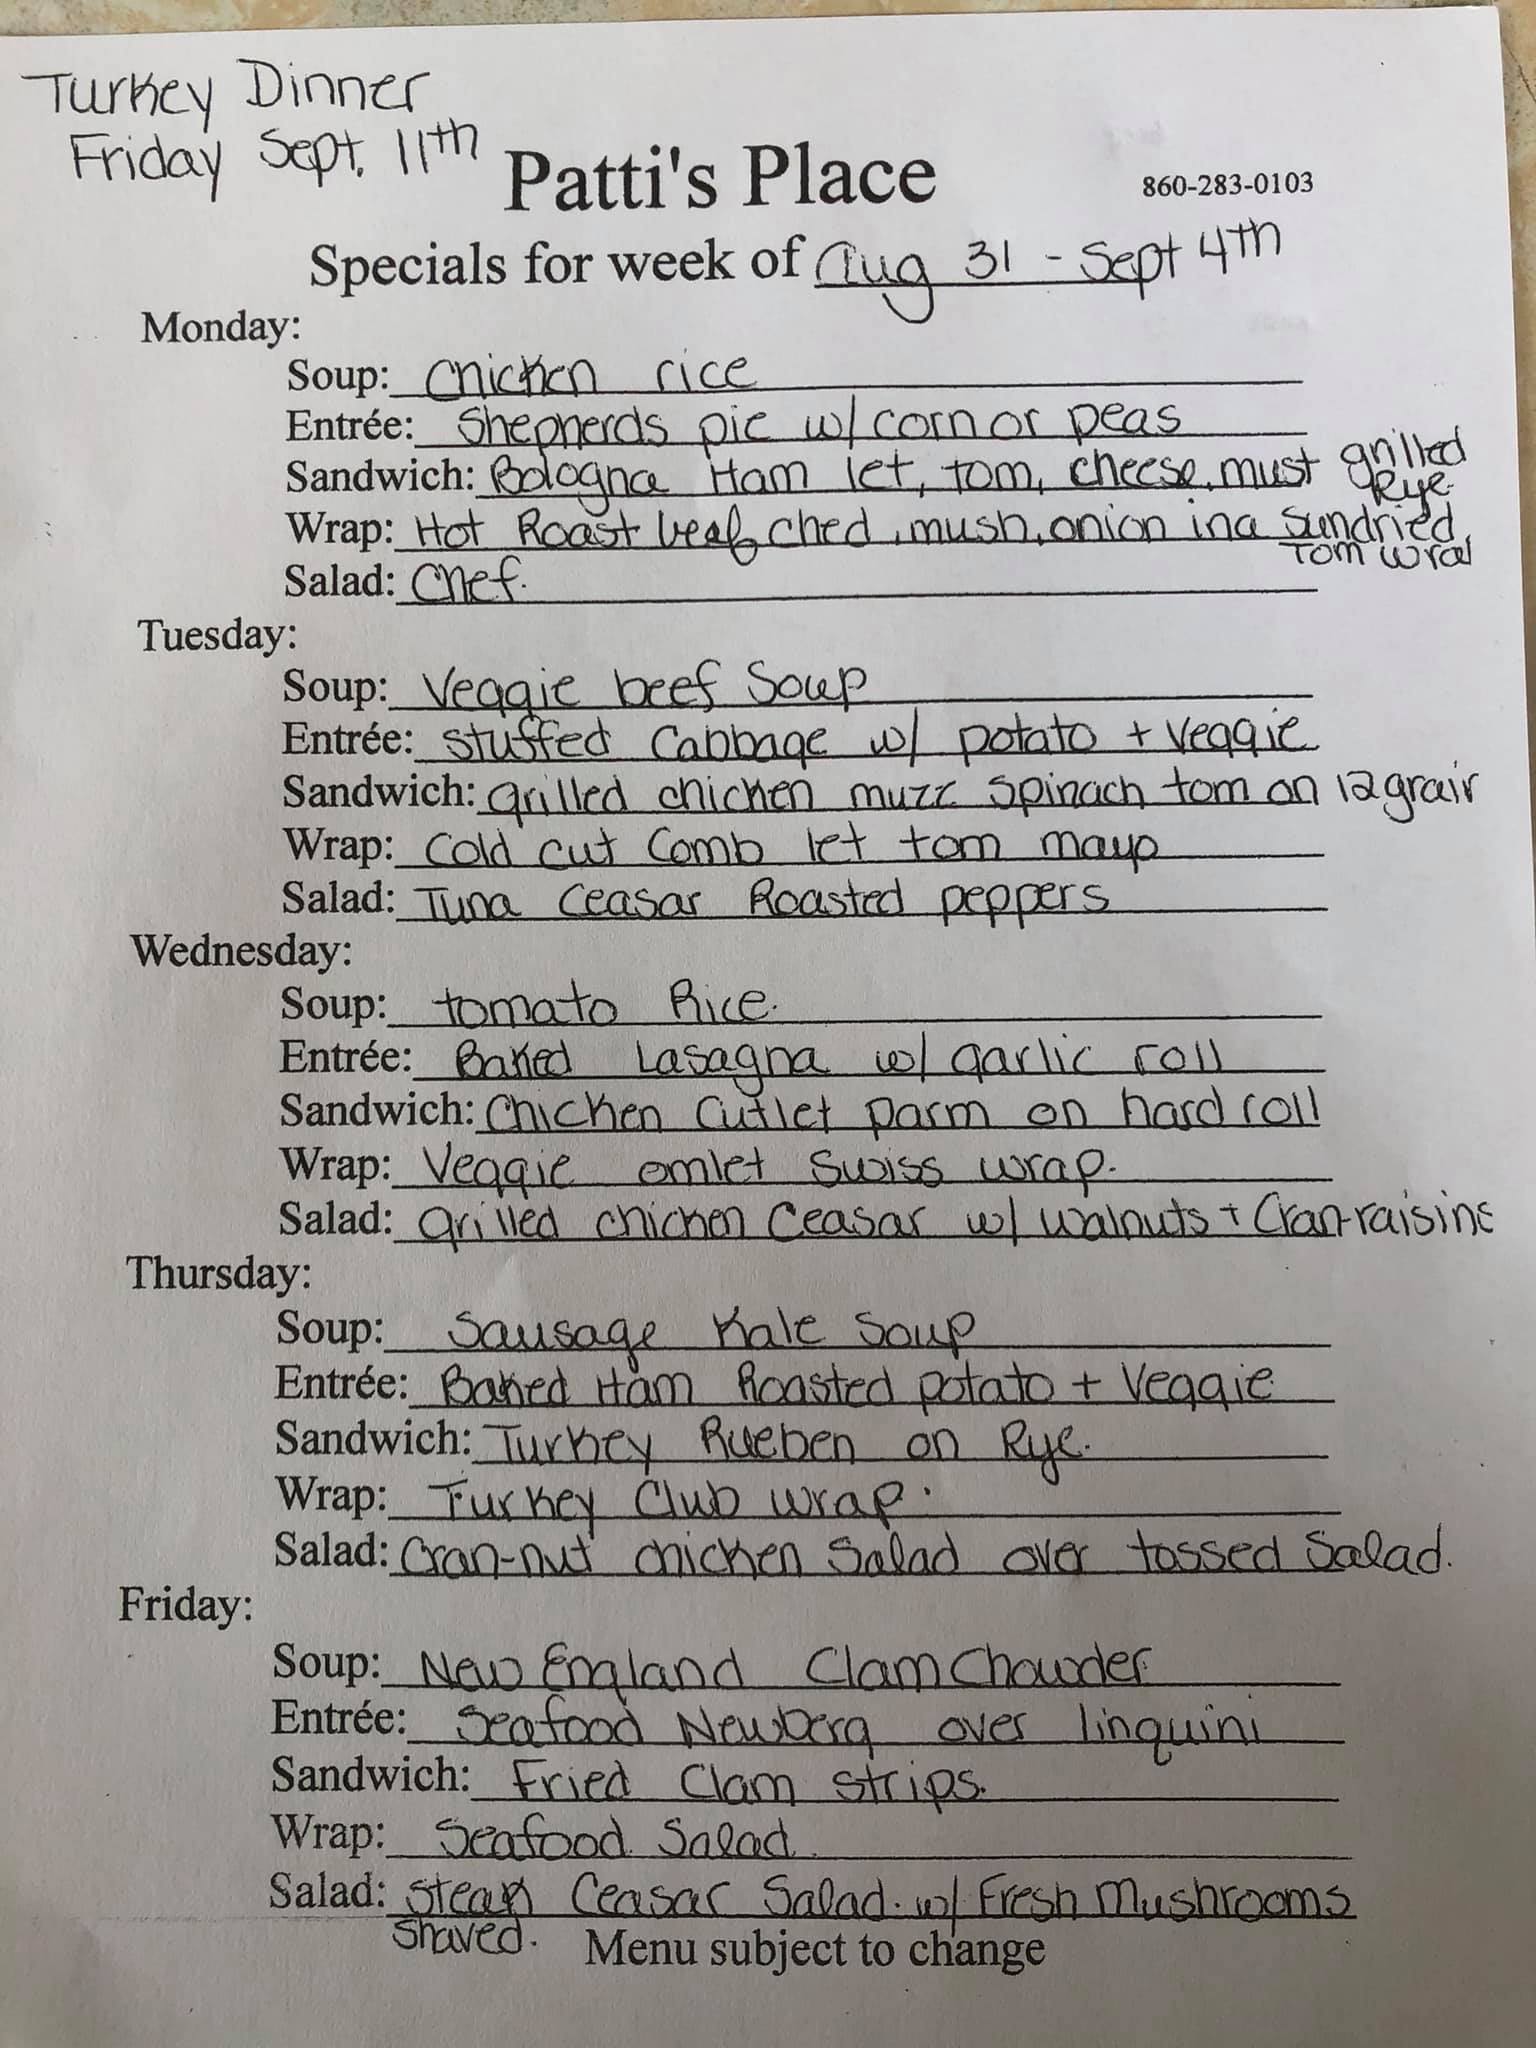 Turkey Dinner
Friday Sept. 11th
Patti's Place
860-283-0103
Specials for week of Aug 31 - Sept 4th
Monday:
Soup: Chicken rice
Entrée: Shepherds pie w/ corn or peas
Sandwich: Bologna Ham let, tom, cheese, must grilled
Rye.
Wrap: Hot Roast beef, ched, mush, onion in a sundried
Tom wra
Salad: Chef.
Tuesday:
Soup: Veggie beef Soup
Entrée: Stuffed Cabbage w/ potato + Veggie
Sandwich: grilled chicken muzz spinach tom on 12 grain
Wrap: Cold cut Comb let tom mayo
Salad: Tuna Ceasar Roasted peppers
Wednesday:
Soup: tomato Rice.
Entrée: Baked Lasagna w/ garlic roll
Sandwich: Chicken Cutlet parm on hard roll
Wrap: Veggie omlet Swiss wrap.
Salad: grilled chicken Ceasar w/ walnuts + Cran-raisins
Thursday:
Soup: Sausage Kale Soup
Entrée: Baked Ham Roasted potato + Veggie
Sandwich: Turkey Rueben on Rye.
Wrap: Turkey Club wrap.
Salad: Cran-nut chicken Salad over tossed Salad.
Friday:
Soup: New England Clam Chowder
Entrée: Seafood Newberg over linquini
Sandwich: Fried Clam strips.
Wrap: Seafood Salad.
Salad: Steak Ceasar Salad. w/ Fresh Mushrooms
Shaved.
Menu subject to change